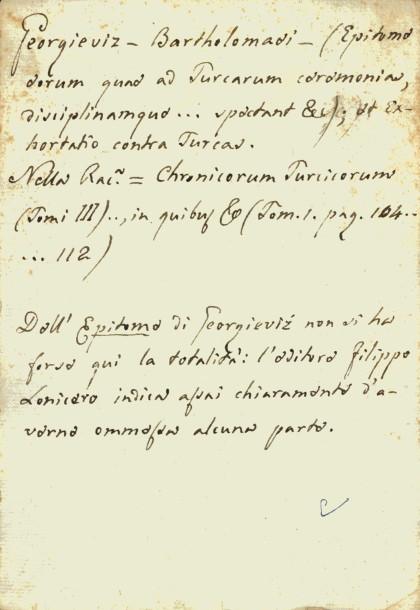 Georgieviz - Bartholomaei - (Epitome
eorum quae ad Turcarum ceremonias,
disciplinamque ... spectant &c); et Ex-
hortatio contra Turcas.
Nella Rac.ª = Chronicorum Turcicorum
(Tomi III)..., in quibus &c (Tom. 1. pag. 104..
... 112)
Dell' Epitome di Georgieviz non si ha
forse qui la totalità: l'editore Filippo
Lonicero indica assai chiaramente d'a-
verne ommessa alcuna parte.